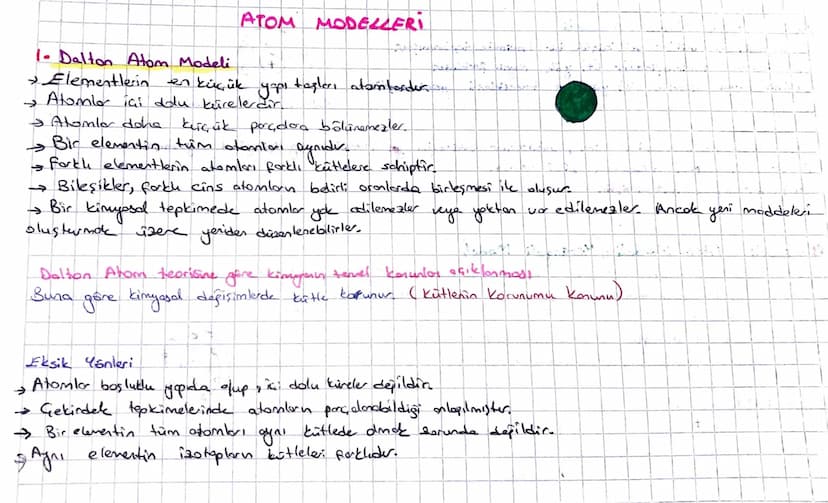 ATOM MODELLERİ
1- Dalton Atom Modeli
→ Elementlerin en küçük yapı taşları atomlardır.
→ Atomlar içi dolu kürelerdir.
→ Atomlar daha küçük parçalara bölünemezler.
→ Bir elementin tüm atomları aynıdır.
→ Farklı elementlerin atomları farklı kütlelere sahiptir.
→ Bileşikler, farklı cins atomların belirli oranlarda birleşmesi ile oluşur.
→ Bir kimyasal tepkimede atomlar yok edilemezler veya yoktan var edilemezler. Ancak yeni maddeleri
oluşturmak üzere yeniden düzenlenebilirler.
Dalton Atom teorisine göre kimyanın temel kanunları açıklanması
Buna göre kimyasal değişimlerde kütle korunur. (Kütlenin Korunumu Kanunu)
Eksik Yönleri
→ Atomlar boşluklu yapıda olup, içi dolu küreler değildir.
→ Çekirdek tepkimelerinde atomların parçalanabildiği anlaşılmıştır.
→ Bir elementin tüm atomları aynı kütlede olmak zorunda değildir.
→ Aynı elementin izotopların kütleleri farklıdır.